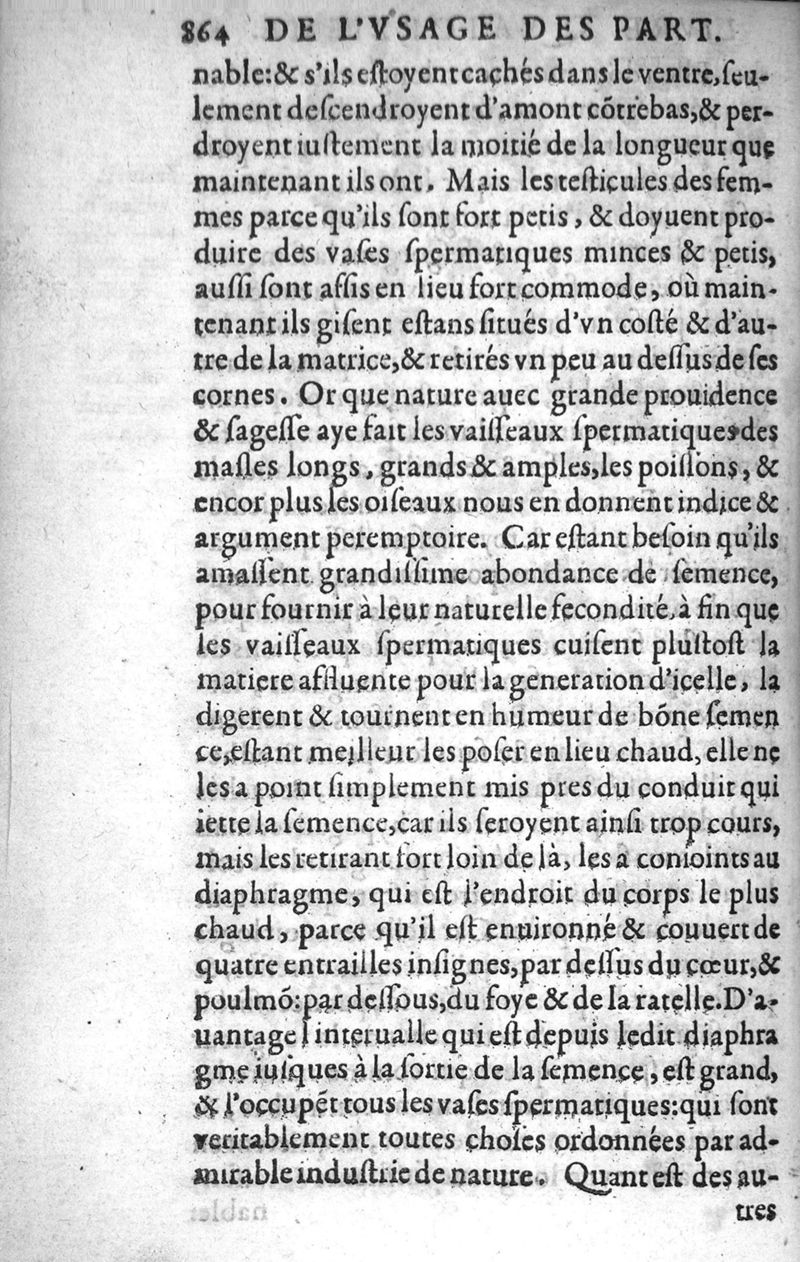 864 DE L'VSAGE DES PART.
nable:& s'ils eſtoyent cachés dans le ventre,ſeu-
lement deſcendroyent d'amont cõtrebas,& per-
droyent iuſtement la moitié de la longueur que
maintenant ils ont. Mais les teſticules des fem-
mes parce qu'ils ſont fort petis, & doyuent pro-
duire des vaſes ſpermatiques minces & petis,
auſſi ſont aſſis en lieu fort commode, où main-
tenant ils giſent eſtans ſitués d'vn coſté & d'au-
tre de la matrice,& retirés vn peu au deſſus de ſes
cornes. Or que nature auec grande prouidence
& ſageſſe aye fait les vaiſſeaux ſpermatiques des
maſles longs, grands & amples,les poiſſons, &
encor plus les oiſeaux nous en donnent indice &
argument peremptoire. Car eſtant beſoin qu'ils
amaſſent grandiſſime abondance de ſemence,
pour fournir à leur naturelle fecondité, à fin que
les vaiſſeaux ſpermatiques cuiſent pluſtoſt la
matiere affluente pour la generation d'icelle, la
digerent & tournent en humeur de bõne ſemen
ce,eſtant meilleur les poſer en lieu chaud, elle ne
les a point ſimplement mis pres du conduit qui
iette la ſemence,car ils ſeroyent ainſi trop cours,
mais les retirant fort loin de là, les a conioints au
diaphragme, qui eſt l'endroit du corps le plus
chaud, parce qu'il eſt enuironné & couuert de
quatre entrailles inſignes,par deſſus du cœur,&
poulmõ:par deſſous,du foye & de la ratelle.D'a-
uantage l interualle qui eſt depuis ledit diaphra
gme iuſques à la ſortie de la ſemence, eſt grand,
& l'occupẽt tous les vaſes ſpermatiques:qui ſont
veritablement toutes choſes ordonnées par ad-
mirable induſtrie de nature. Quant eſt des au-
tres